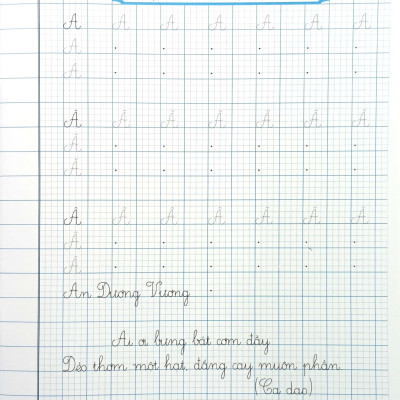 A A A A A A A
A
A
Ă Ă Ă Ă Ă Ă Ă
Ă
Ă
Â Â Â Â Â Â Â
Â
Â
An Dương Vương
Ai ơi bưng bát cơm đầy
Dẻo thơm một hạt, đắng cay muôn phần
(Ca dao)